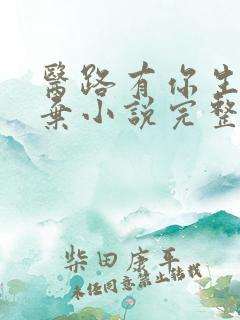 醫路有你生
棄小說完整
柴田康平
未經同意禁止轉載